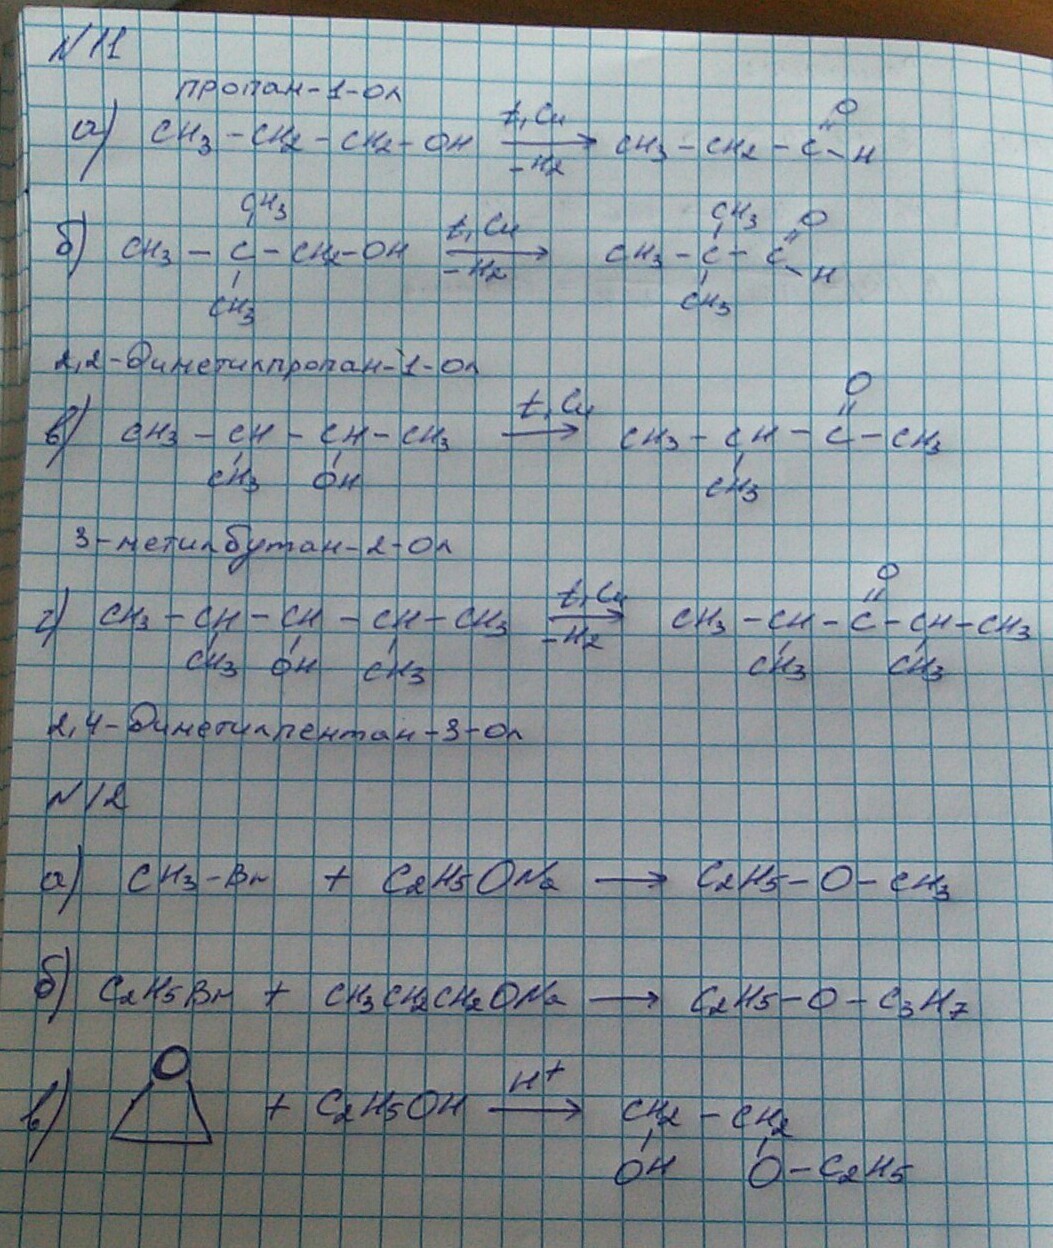 N 11
пропан-1-ол
а) CH3 - CH2 - CH2 - OH t, Cu → -H2 CH3 - CH2 - C = O - H
CH3 CH3 O
б) CH3 - C - CH2 - OH t, Cu → -H2 CH3 - C - C - H
CH3 CH3
2,2-Диметилпропан-1-ол
O
в) CH3 - CH - CH - CH3 t, Cu → CH3 - CH - C - CH3
CH3 OH CH3
3-метилбутан-2-ол
O
г) CH3 - CH - CH - CH - CH3 t, Cu → -H2 CH3 - CH - C - CH - CH3
CH3 OH CH3 CH3 CH3
2,4-Диметилпентан-3-ол
N 12
а) CH3 - Br + C2H5ONa → C2H5 - O - CH3
б) C2H5Br + CH3CH2CH2ONa → C2H5 - O - C3H7
O
в) + C2H5OH H+ → CH2 - CH2
OH O - C2H5